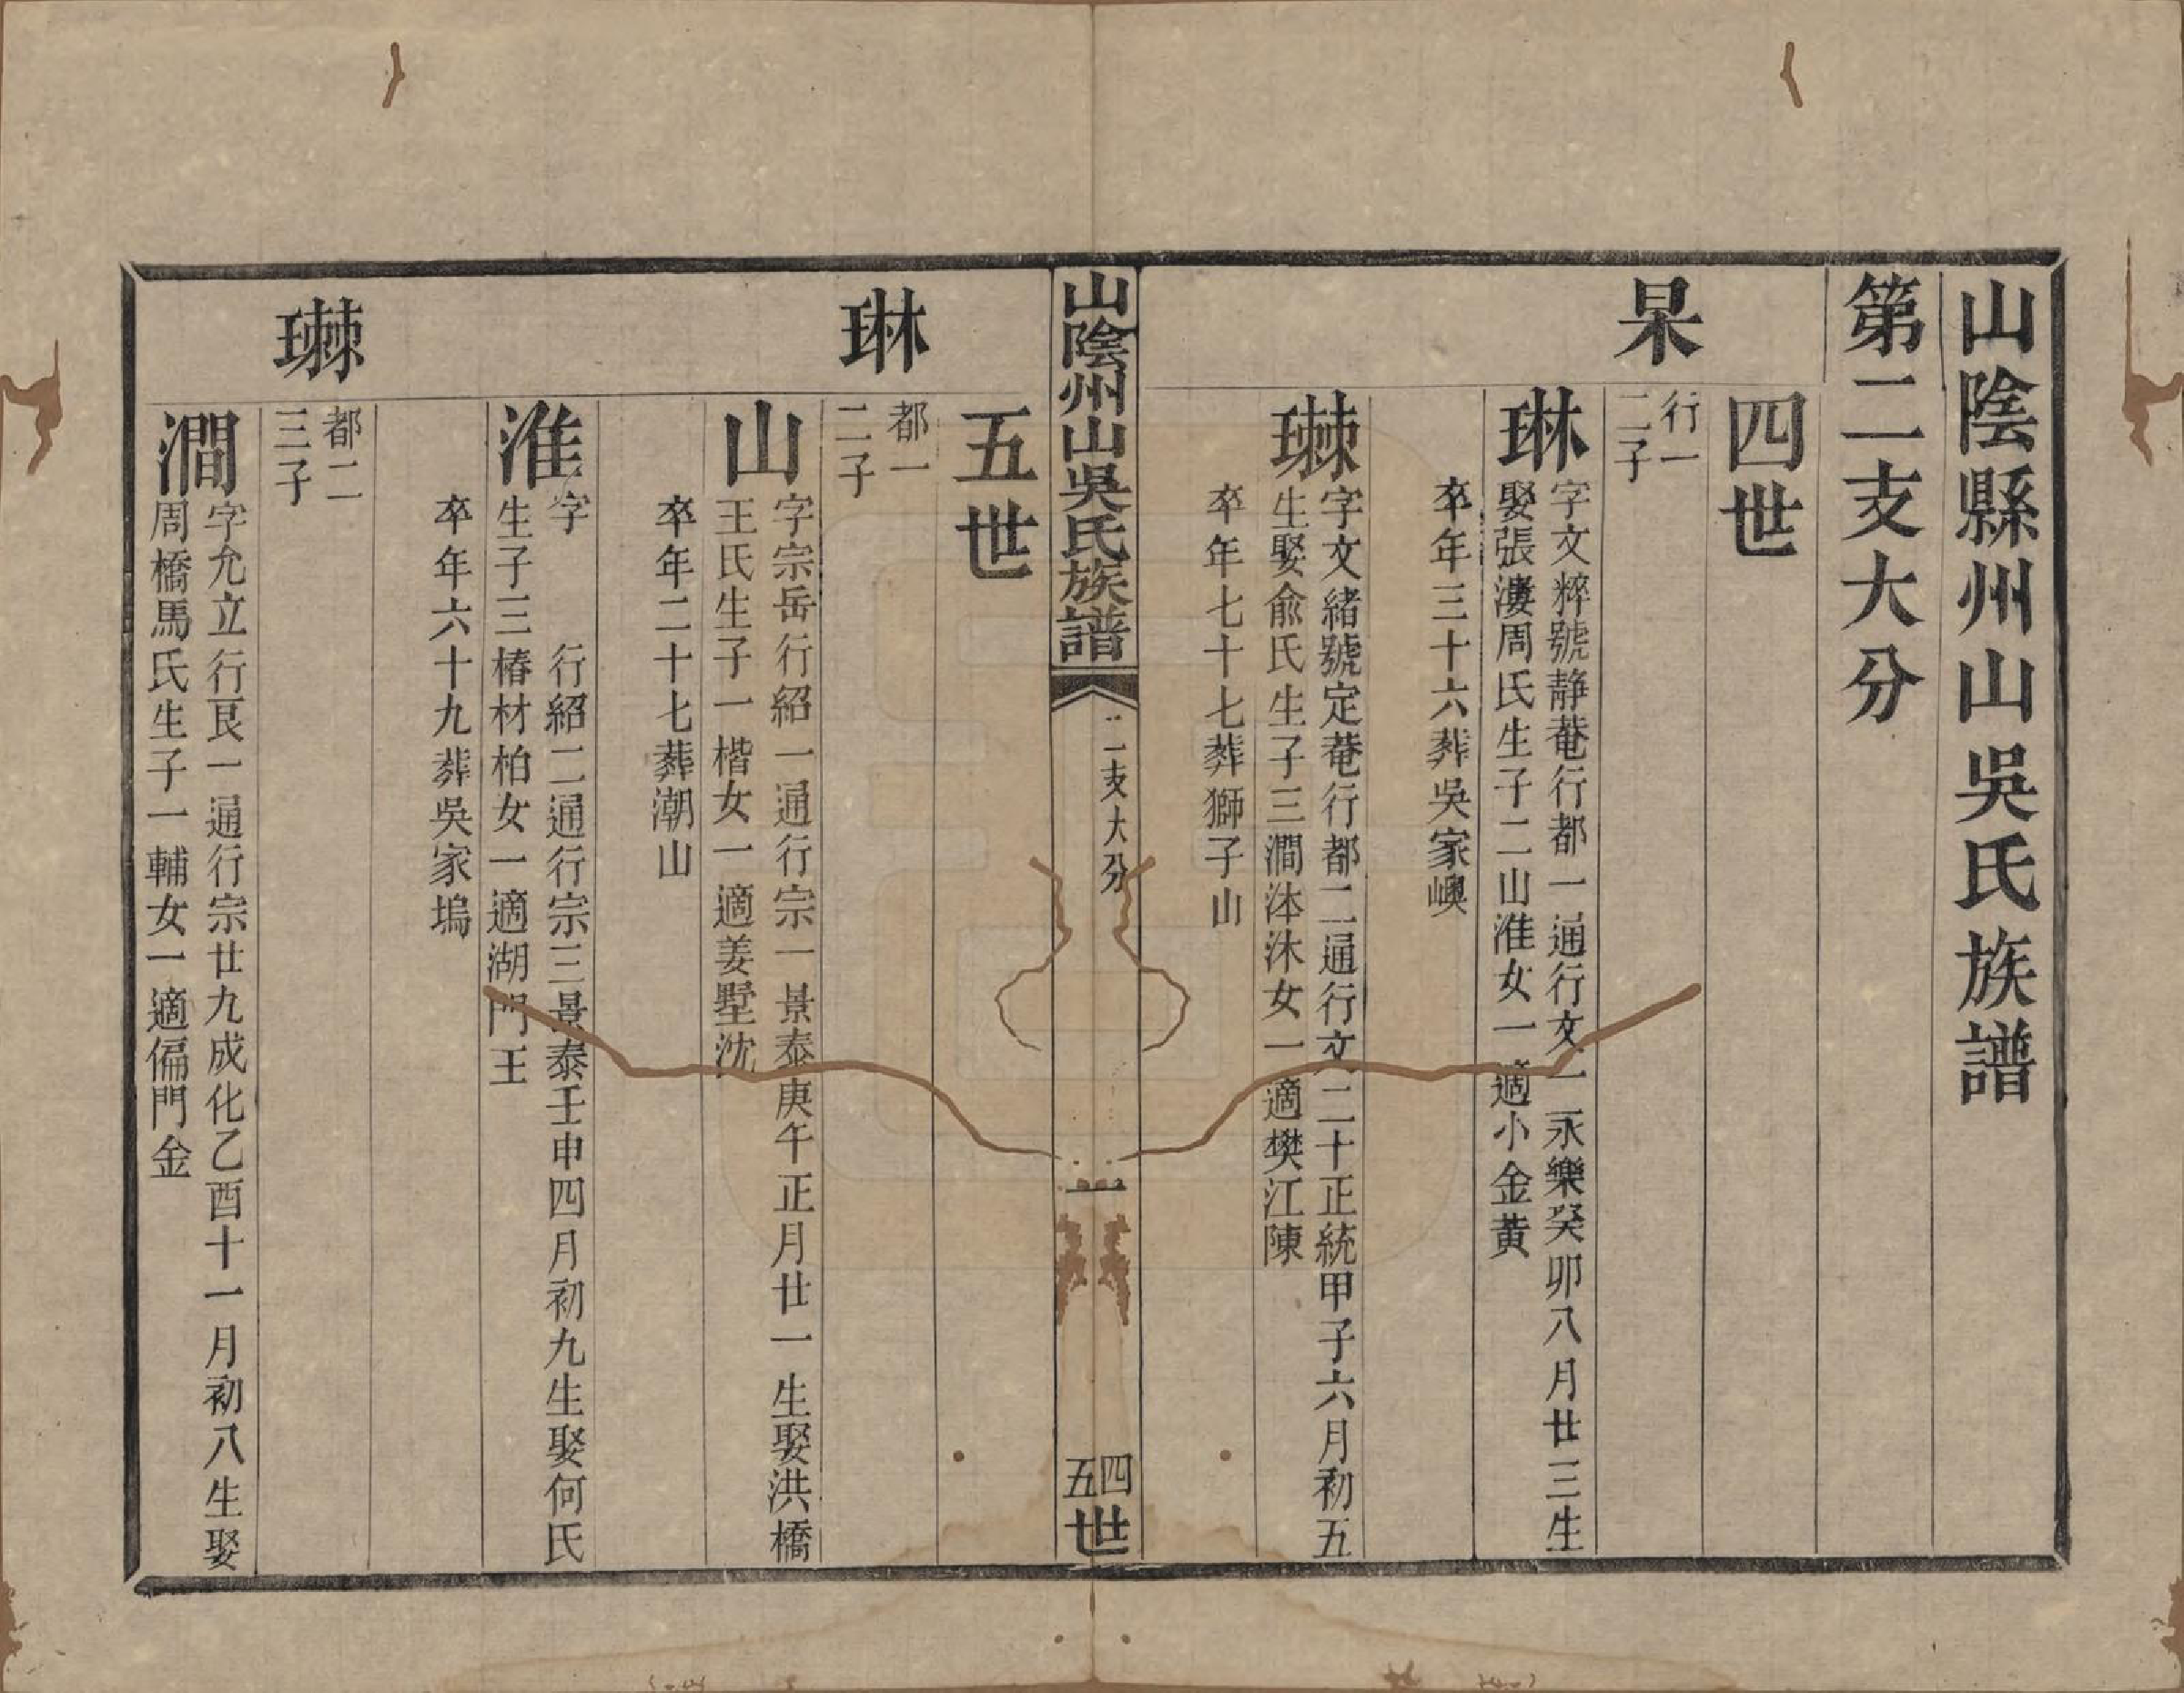 山陰縣州山吳氏族譜
第二支大分
四世
杲
行一
二子
琳
字文粹號靜菴行都一通行文一永樂癸卯八月廿三生
娶張漊周氏生子二山淮女一適小金黃
卒年三十六葬吳家嶴
字文緒號定菴行都二通行文二十正統甲子六月初五
生娶俞氏生子三澗沐女一適樊江陳
卒年七十七葬獅子山
山陰州山吳氏族譜
二支大分
一
四
五
世
五世
琳
都一
二子
山
字宗岳行紹一通行宗一景泰庚午正月廿一生娶洪橋
王氏生子一楷女一適姜墅沈
卒年二十七葬潮山
淮
字 行紹二通行宗三景泰壬申四月初九生娶何氏
生子三椿材柏女一適湖門王
卒年六十九葬吳家塢
都二
三子
澗
字允立行艮一通行宗廿九成化乙酉十一月初八生娶
周橋馬氏生子一輔女一適偏門金